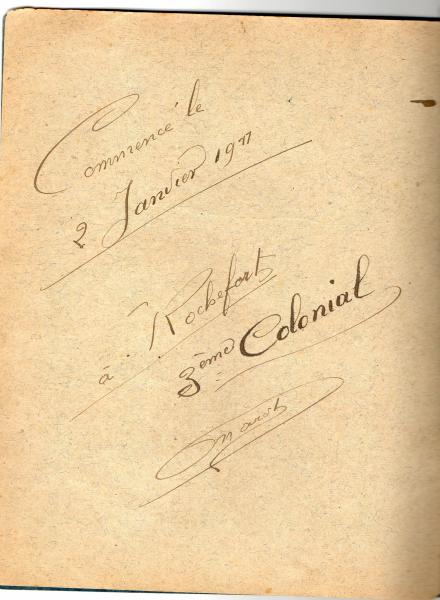 Commencé le
2 Janvier 1911
à Rochefort
3ème Colonial